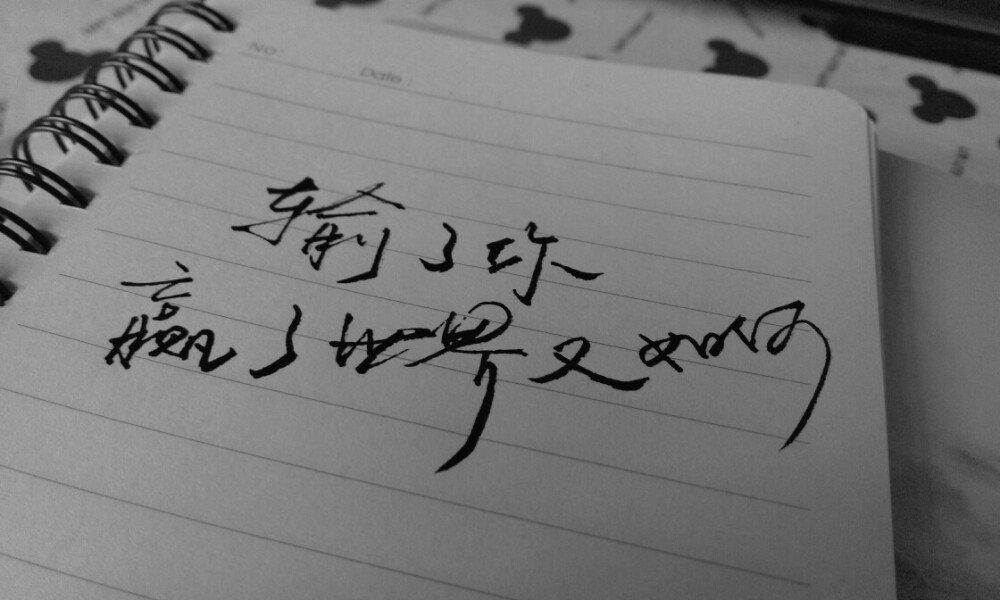 No:
Date :
输了你
赢了世界又如何